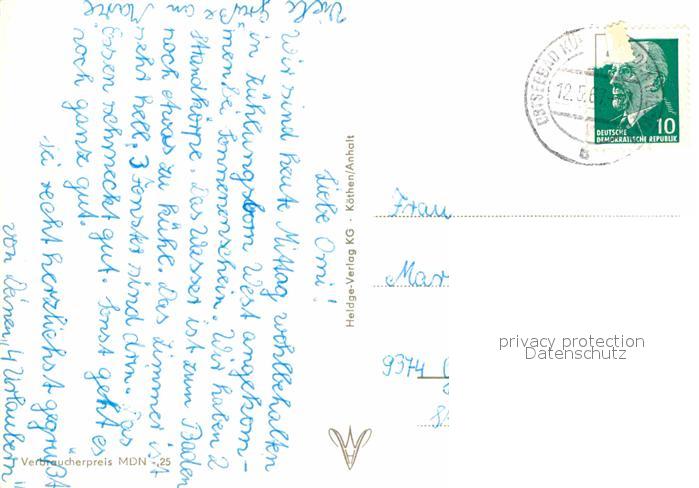 Liebe Omi!
Wir sind heute Mittag wohlbehalten
in Kühlungsborn West angekom-
men bei Sonnenschein. Wir haben 2
Strandkörpe. Das Wasser ist zum Baden
noch etwas zu kühl. Das Zimmer ist
sehr hell, 3 Fenster sind drin. Das
Essen schmeckt gut. Sonst geht es
noch ganz gut.
Sei recht herzlichst gegrüßt
von Deinen "4 Urlaubern"
Viele
Grüße an
Heldge-Verlag KG · Köthen/Anhalt
Verbraucherpreis MDN -,25
OSTSEEBAD KÜ
12.5.6
10
DEUTSCHE
DEMOKRATISCHE REPUBLIK
Frau
Mar
9374
privacy protection
Datenschutz